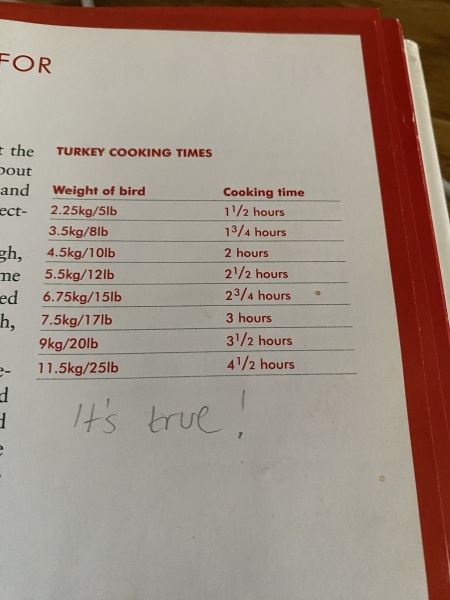 FOR
t the
bout
and
ect-
gh,
me
ed
h,
e-
d
d
e
TURKEY COOKING TIMES
Weight of bird Cooking time
2.25kg/5lb 1 1/2 hours
3.5kg/8lb 1 3/4 hours
4.5kg/10lb 2 hours
5.5kg/12lb 2 1/2 hours
6.75kg/15lb 2 3/4 hours
7.5kg/17lb 3 hours
9kg/20lb 3 1/2 hours
11.5kg/25lb 4 1/2 hours
It's true!